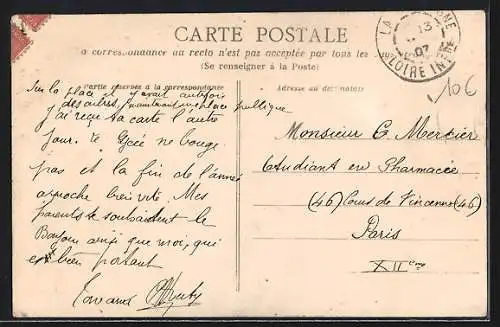 CARTE POSTALE
La correspondance au recto n'est pas acceptée par tous les
(Se renseigner à la Poste)
Partie réservée à la correspondance
Adresse du destinataire
LOIRE INF
13
07
106
Sur la place il y avait autrefois
des arbres, maintenant place publique
J'ai reçu ta carte l'autre
jour. Le Lycée ne bouge
pas et la fin de l'année
approche bien vite. Mes
parents te souhaitent le
Bonjour ainsi que moi, qui
est bien portant
Monsieur C. Mercier
Etudiant en Pharmacie
(46) Cours de Vincennes (46)
Paris
XIIème